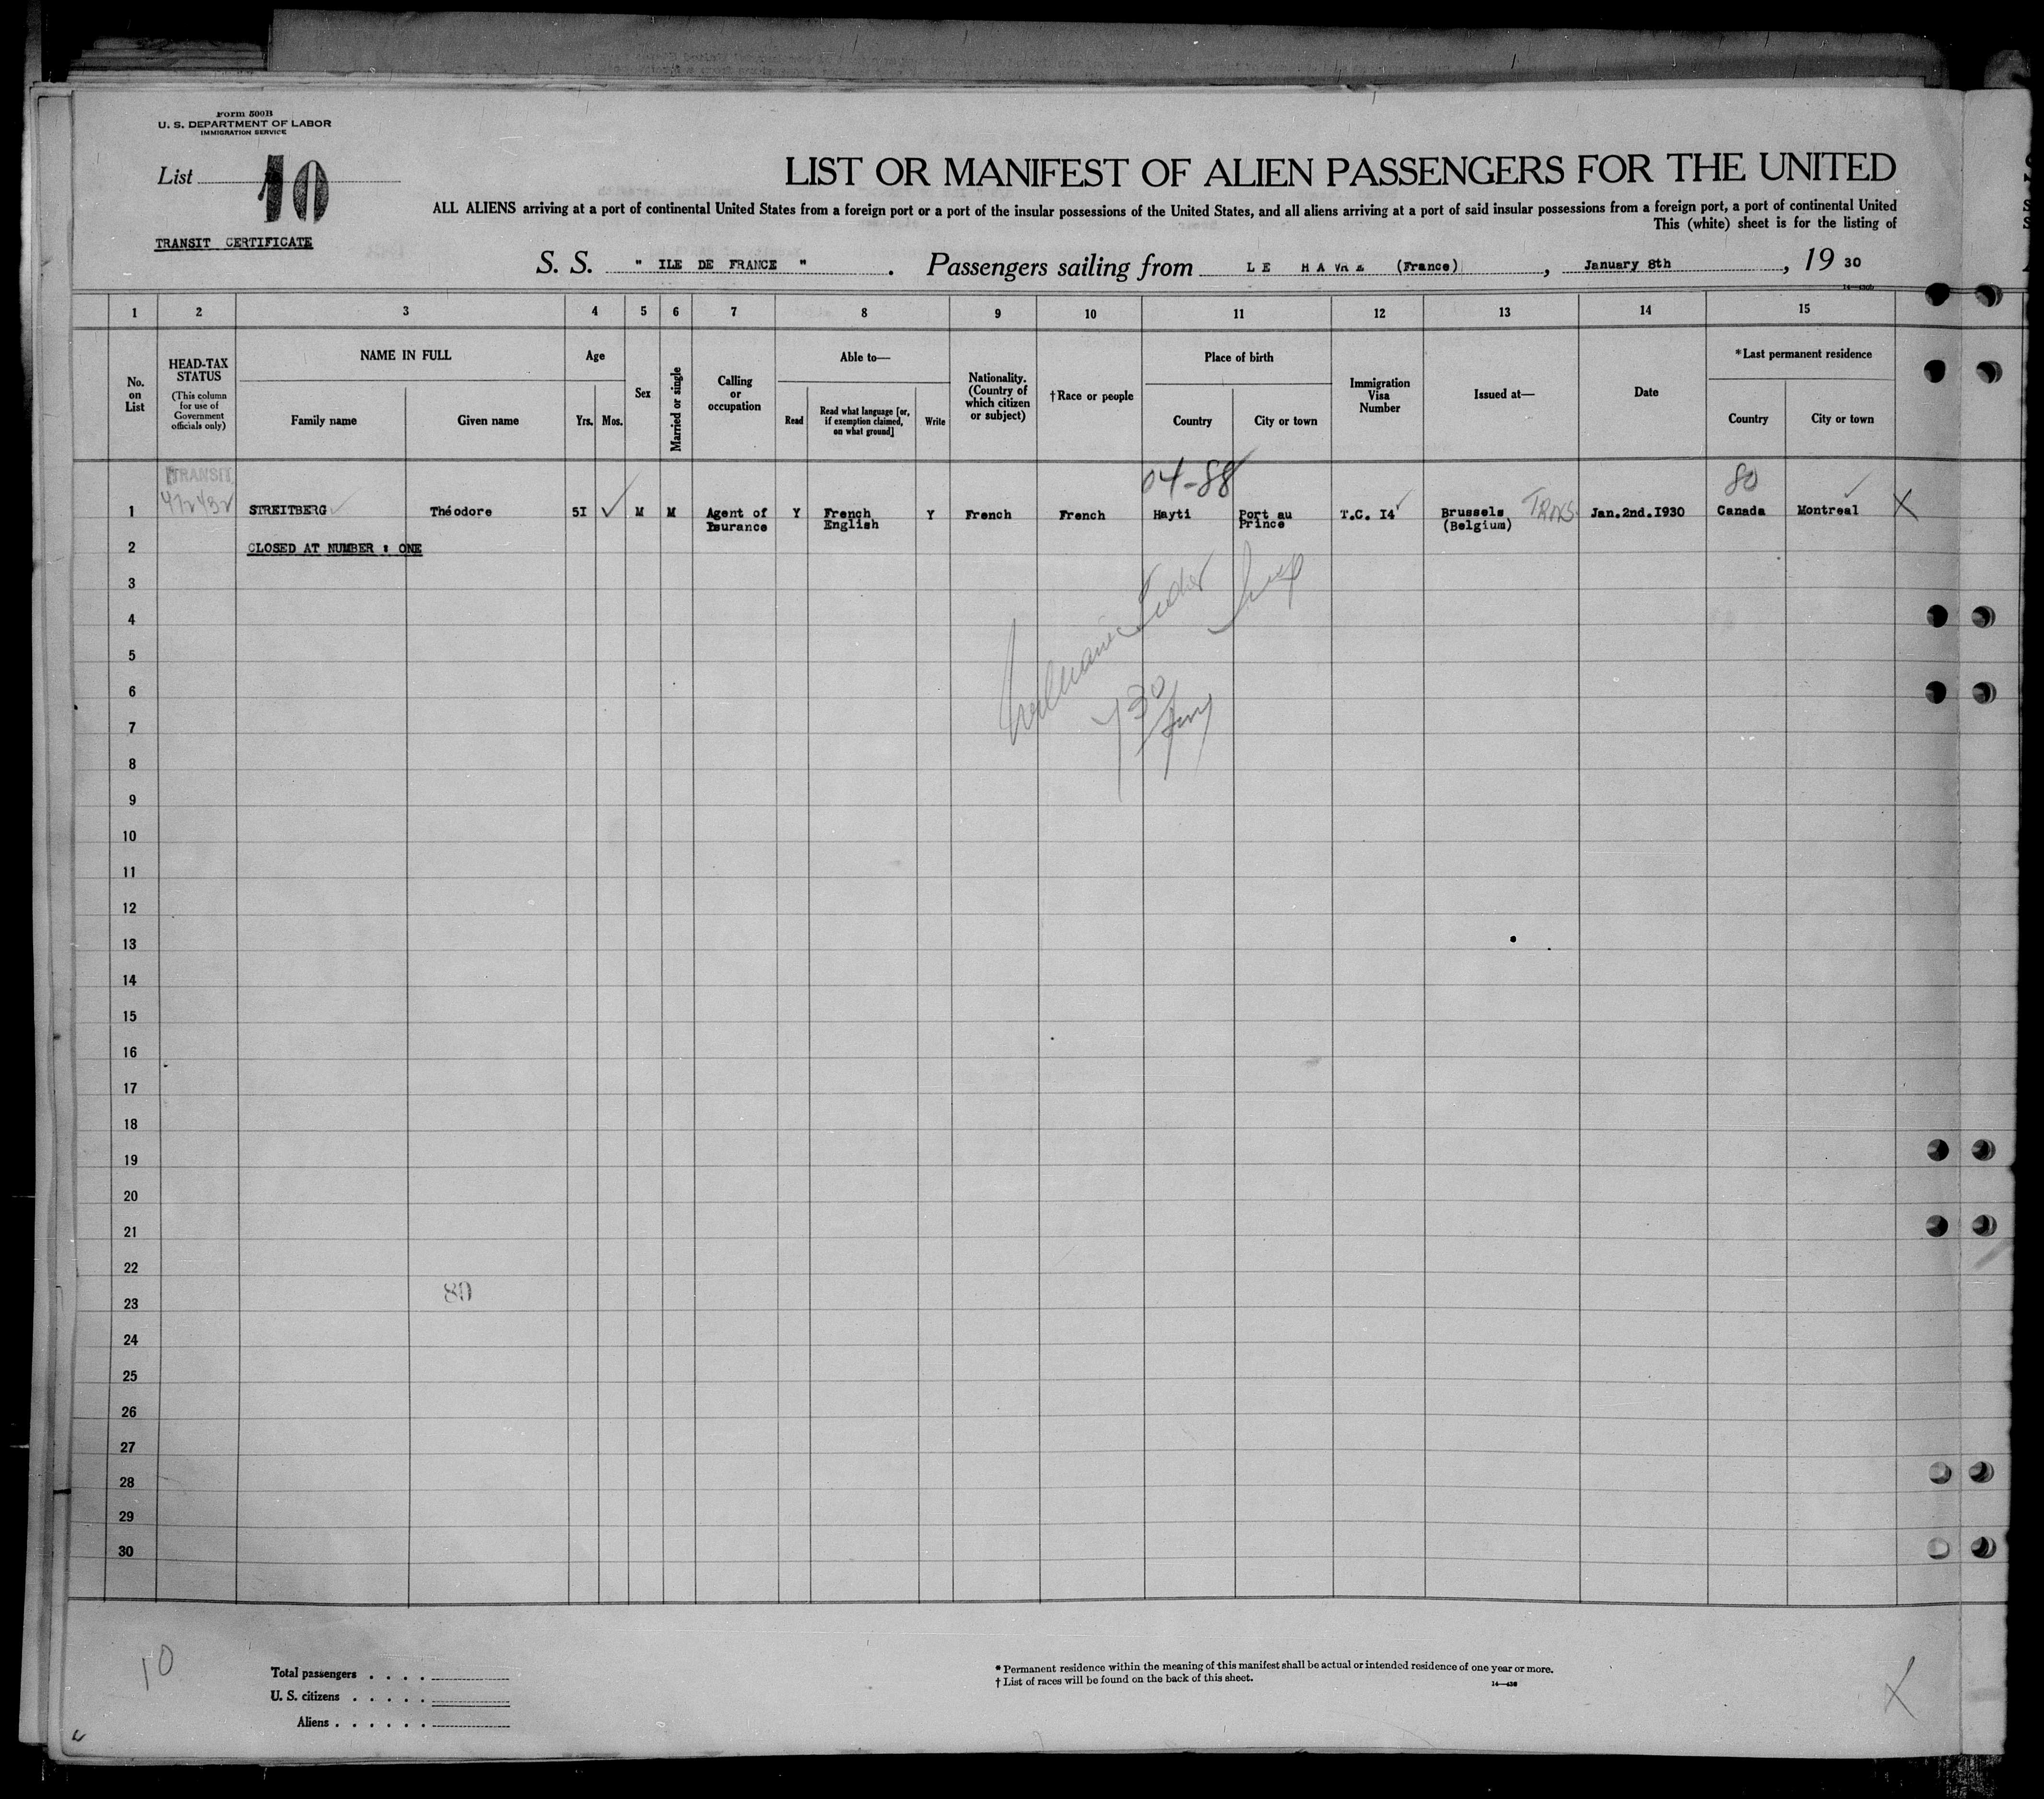 Form 500B
U. S. DEPARTMENT OF LABOR
IMMIGRATION SERVICE
List 10
TRANSIT CERTIFICATE
LIST OR MANIFEST OF ALIEN PASSENGERS FOR THE UNITED
ALL ALIENS arriving at a port of continental United States from a foreign port or a port of the insular possessions of the United States, and all aliens arriving at a port of said insular possessions from a foreign port, a port of continental United
This (white) sheet is for the listing of
S. S. " ILE DE FRANCE " . Passengers sailing from LE HAVRE (France) , January 8th , 19 30
1 2 3 4 5 6 7 8 9 10 11 12 13 14 15
No. on List
HEAD-TAX STATUS
(This column for use of Government officials only)
NAME IN FULL
Family name
Given name
Age
Yrs.
Mos.
Sex
Married or single
Calling or occupation
Able to—
Read
Read what language [or, if exemption claimed, on what ground]
Write
Nationality. (Country of which citizen or subject)
†Race or people
Place of birth
Country
City or town
Immigration Visa Number
Issued at—
Date
*Last permanent residence
Country
City or town
TRANSIT 04-88 80
1 STREITBERG Théodore 5I M M Agent of Y French Y French French Hayti Port au T.C. I4 Brussels TRNS Jan.2nd.I930 Canada Montreal X
Isurance English Prince (Belgium)
2 CLOSED AT NUMBER : ONE
3
4
5
6
7
8
9
10
11
12
13
14
15
16
17
18
19
20
21
22
80
23
24
25
26
27
28
29
30
10
Total passengers . . . .
U. S. citizens . . . . .
Aliens . . . . . .
* Permanent residence within the meaning of this manifest shall be actual or intended residence of one year or more.
† List of races will be found on the back of this sheet.
14—430
X